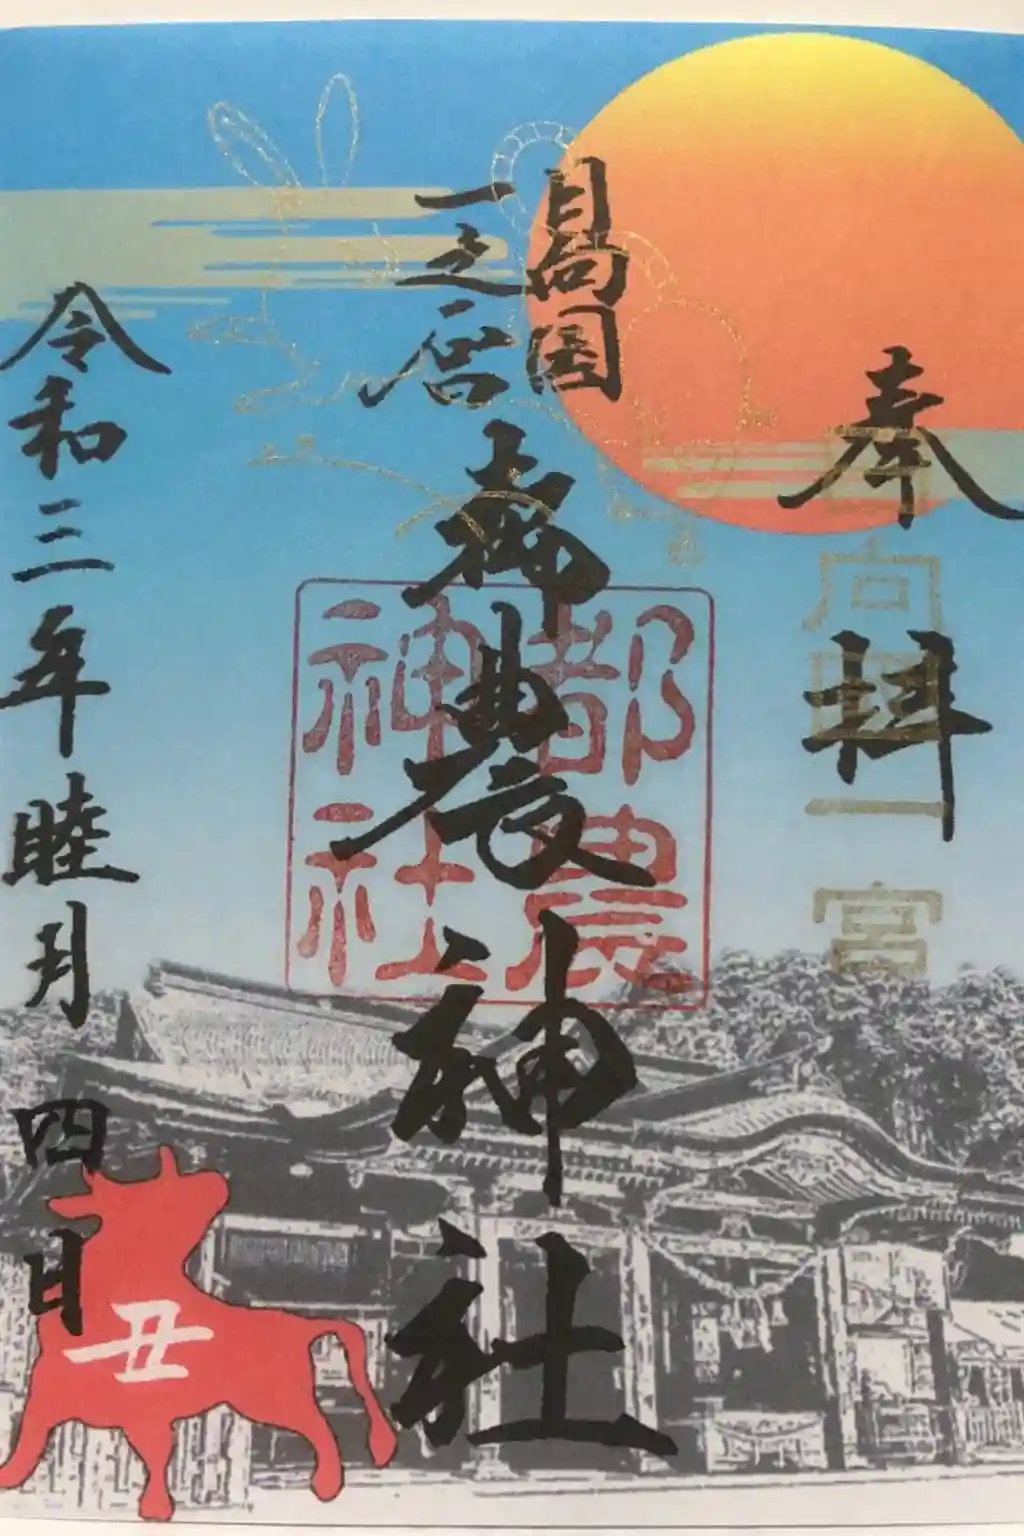 奉拝
日向国一宮
日向国
一之宮
都農神社
都農
神社
令和三年睦月四日
丑